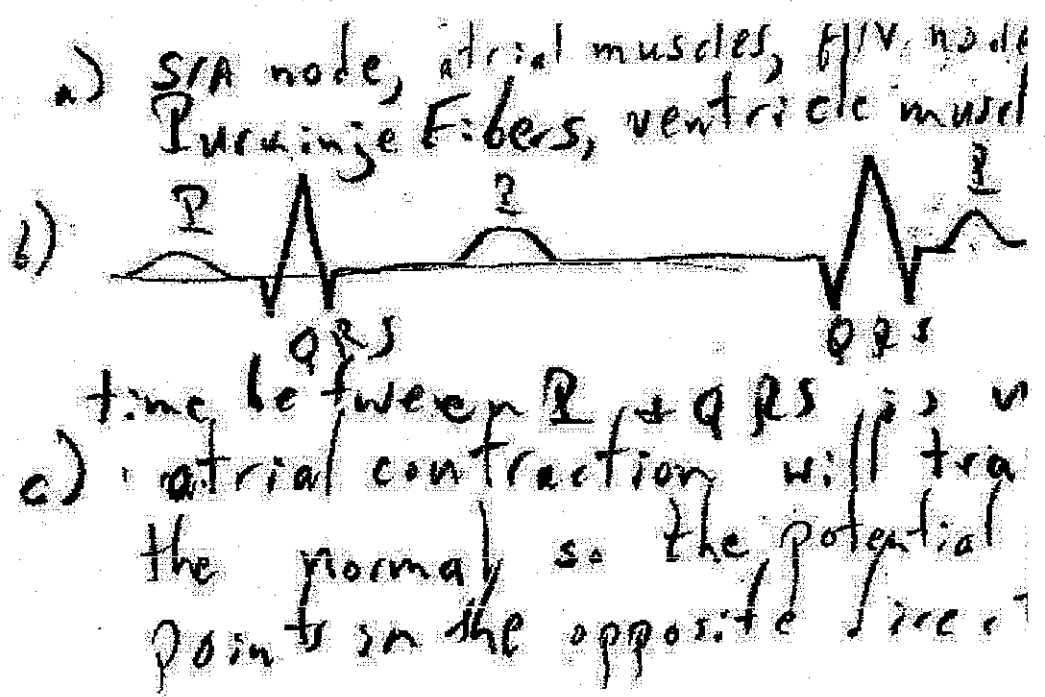 a) S/A node, atrial muscles, A/V node
Purkinje Fibers, ventricle muscl
b) P P P
QRS QRS
time between P + QRS is
c) atrial contraction will tra
the normal so the potential
points in the opposite direct